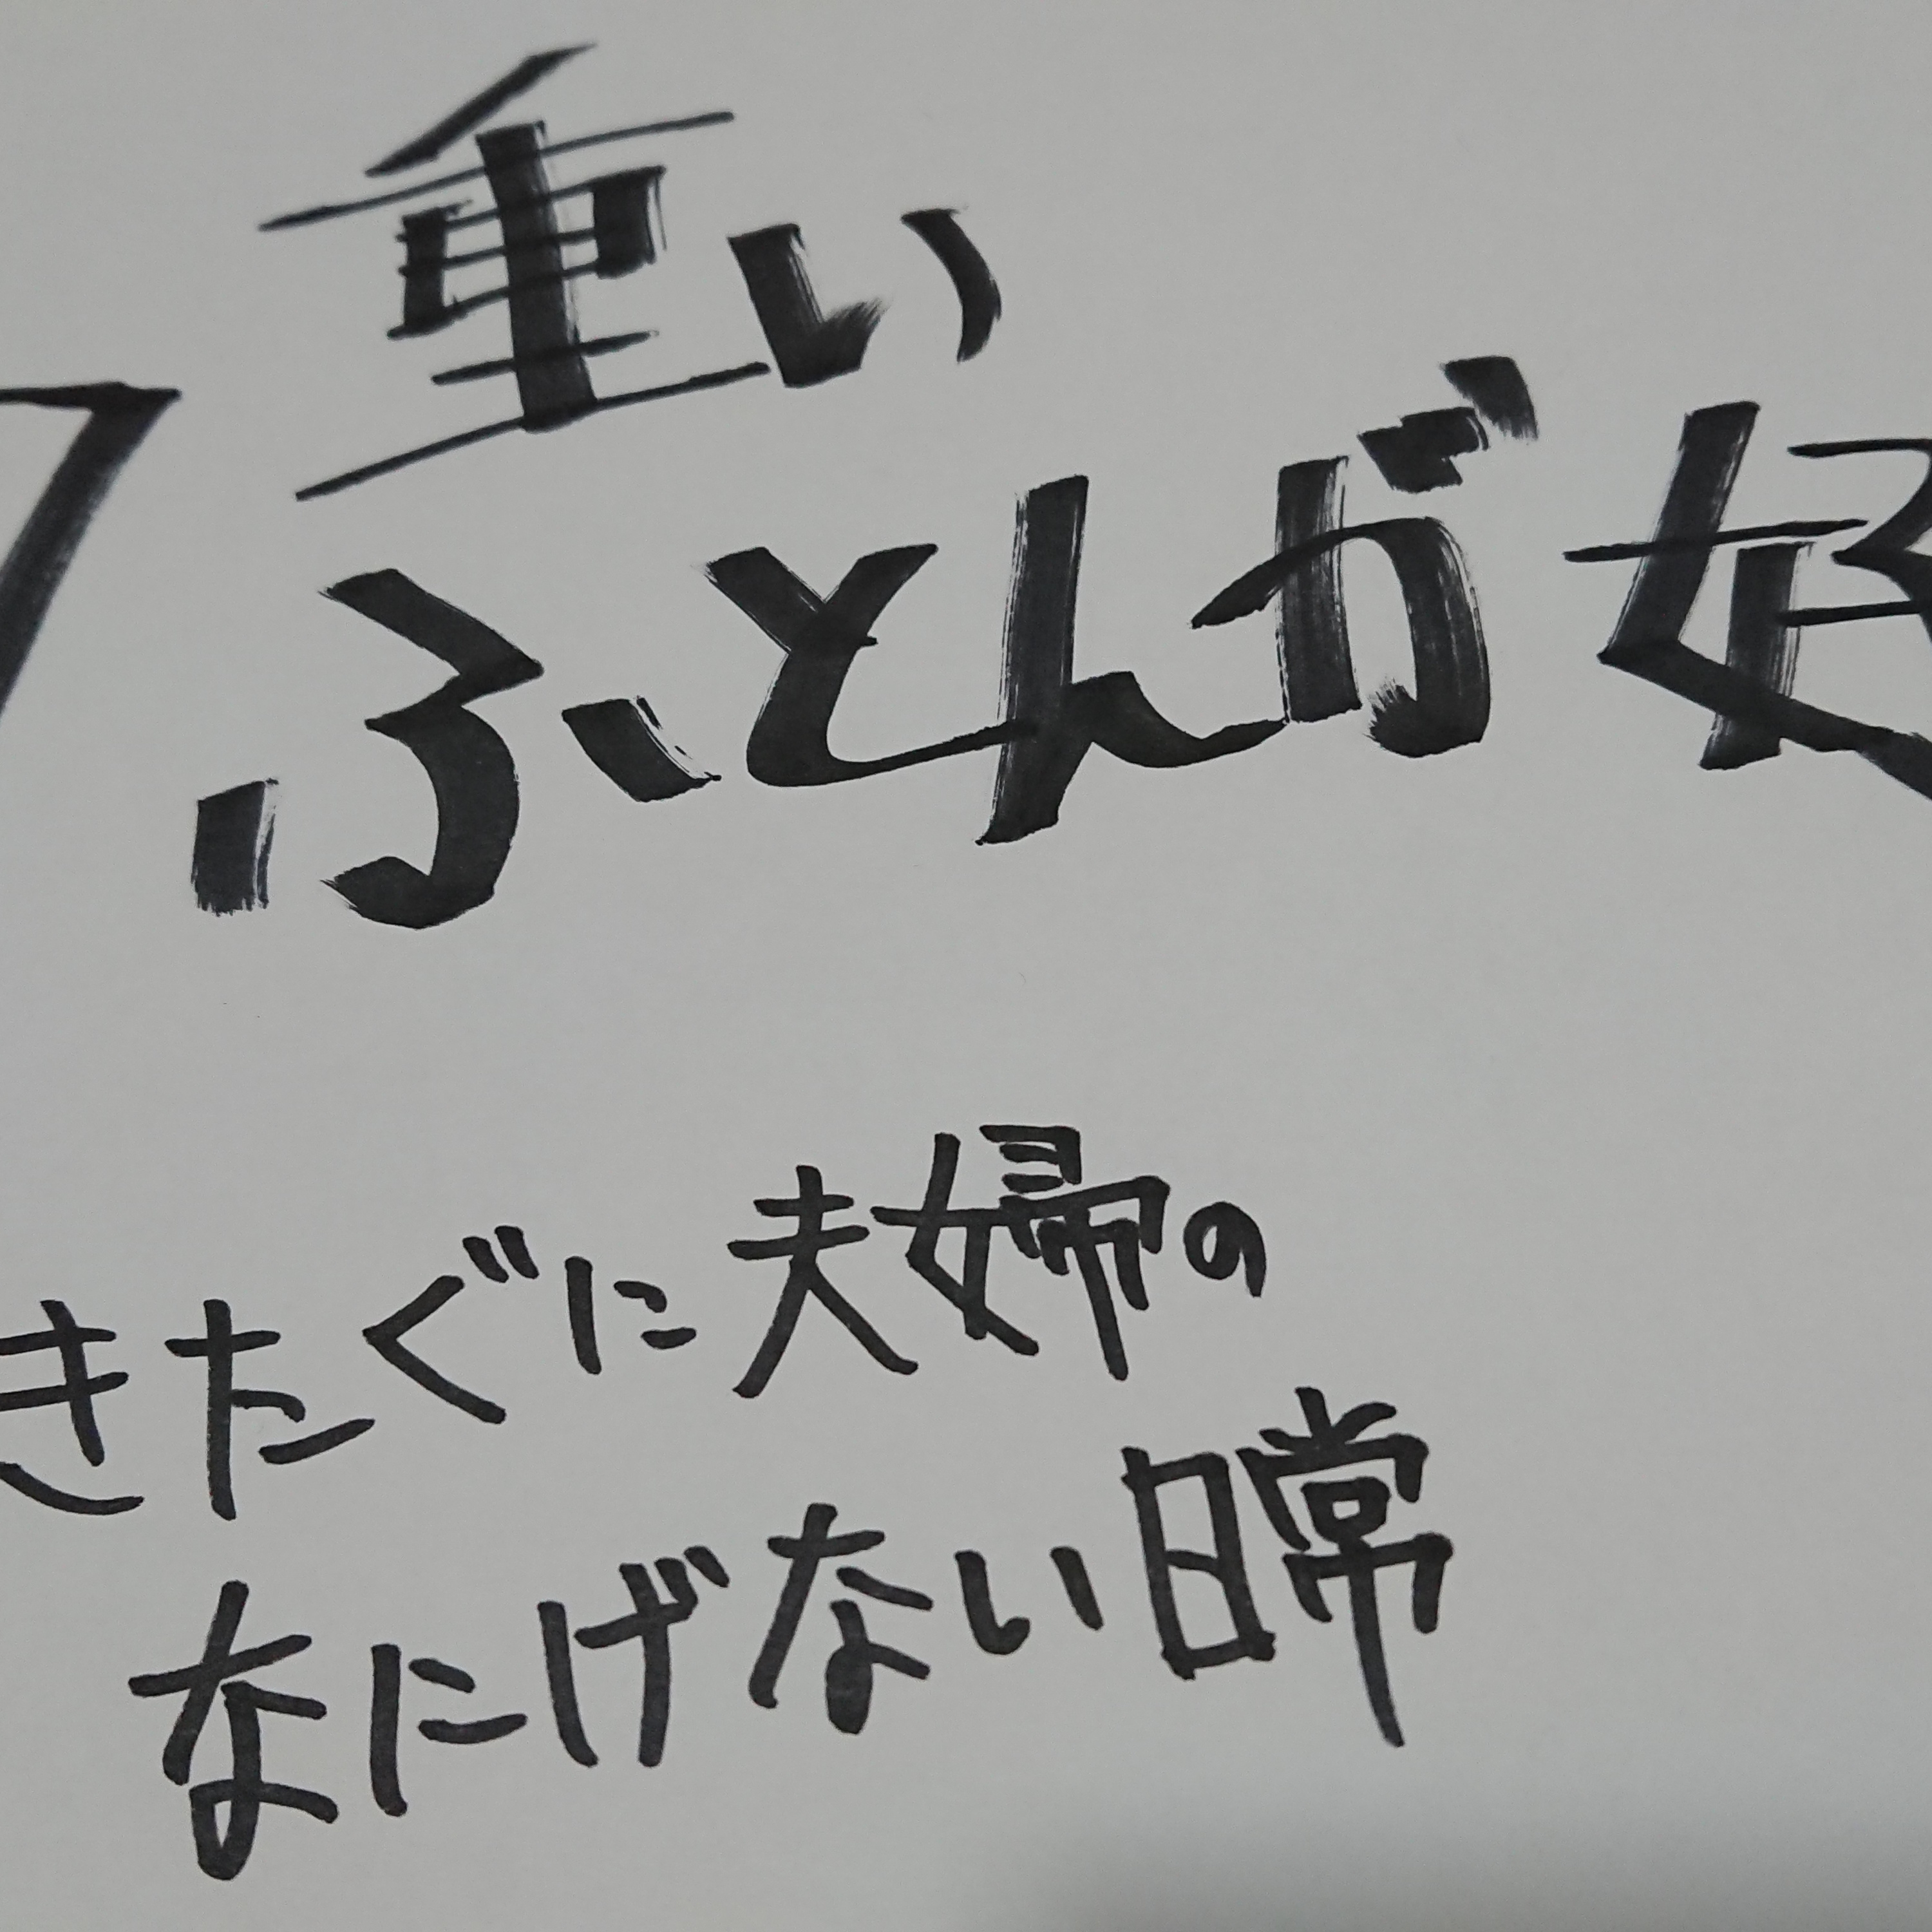 重い
ふとんが好
きたぐに夫婦の
なにげない日常